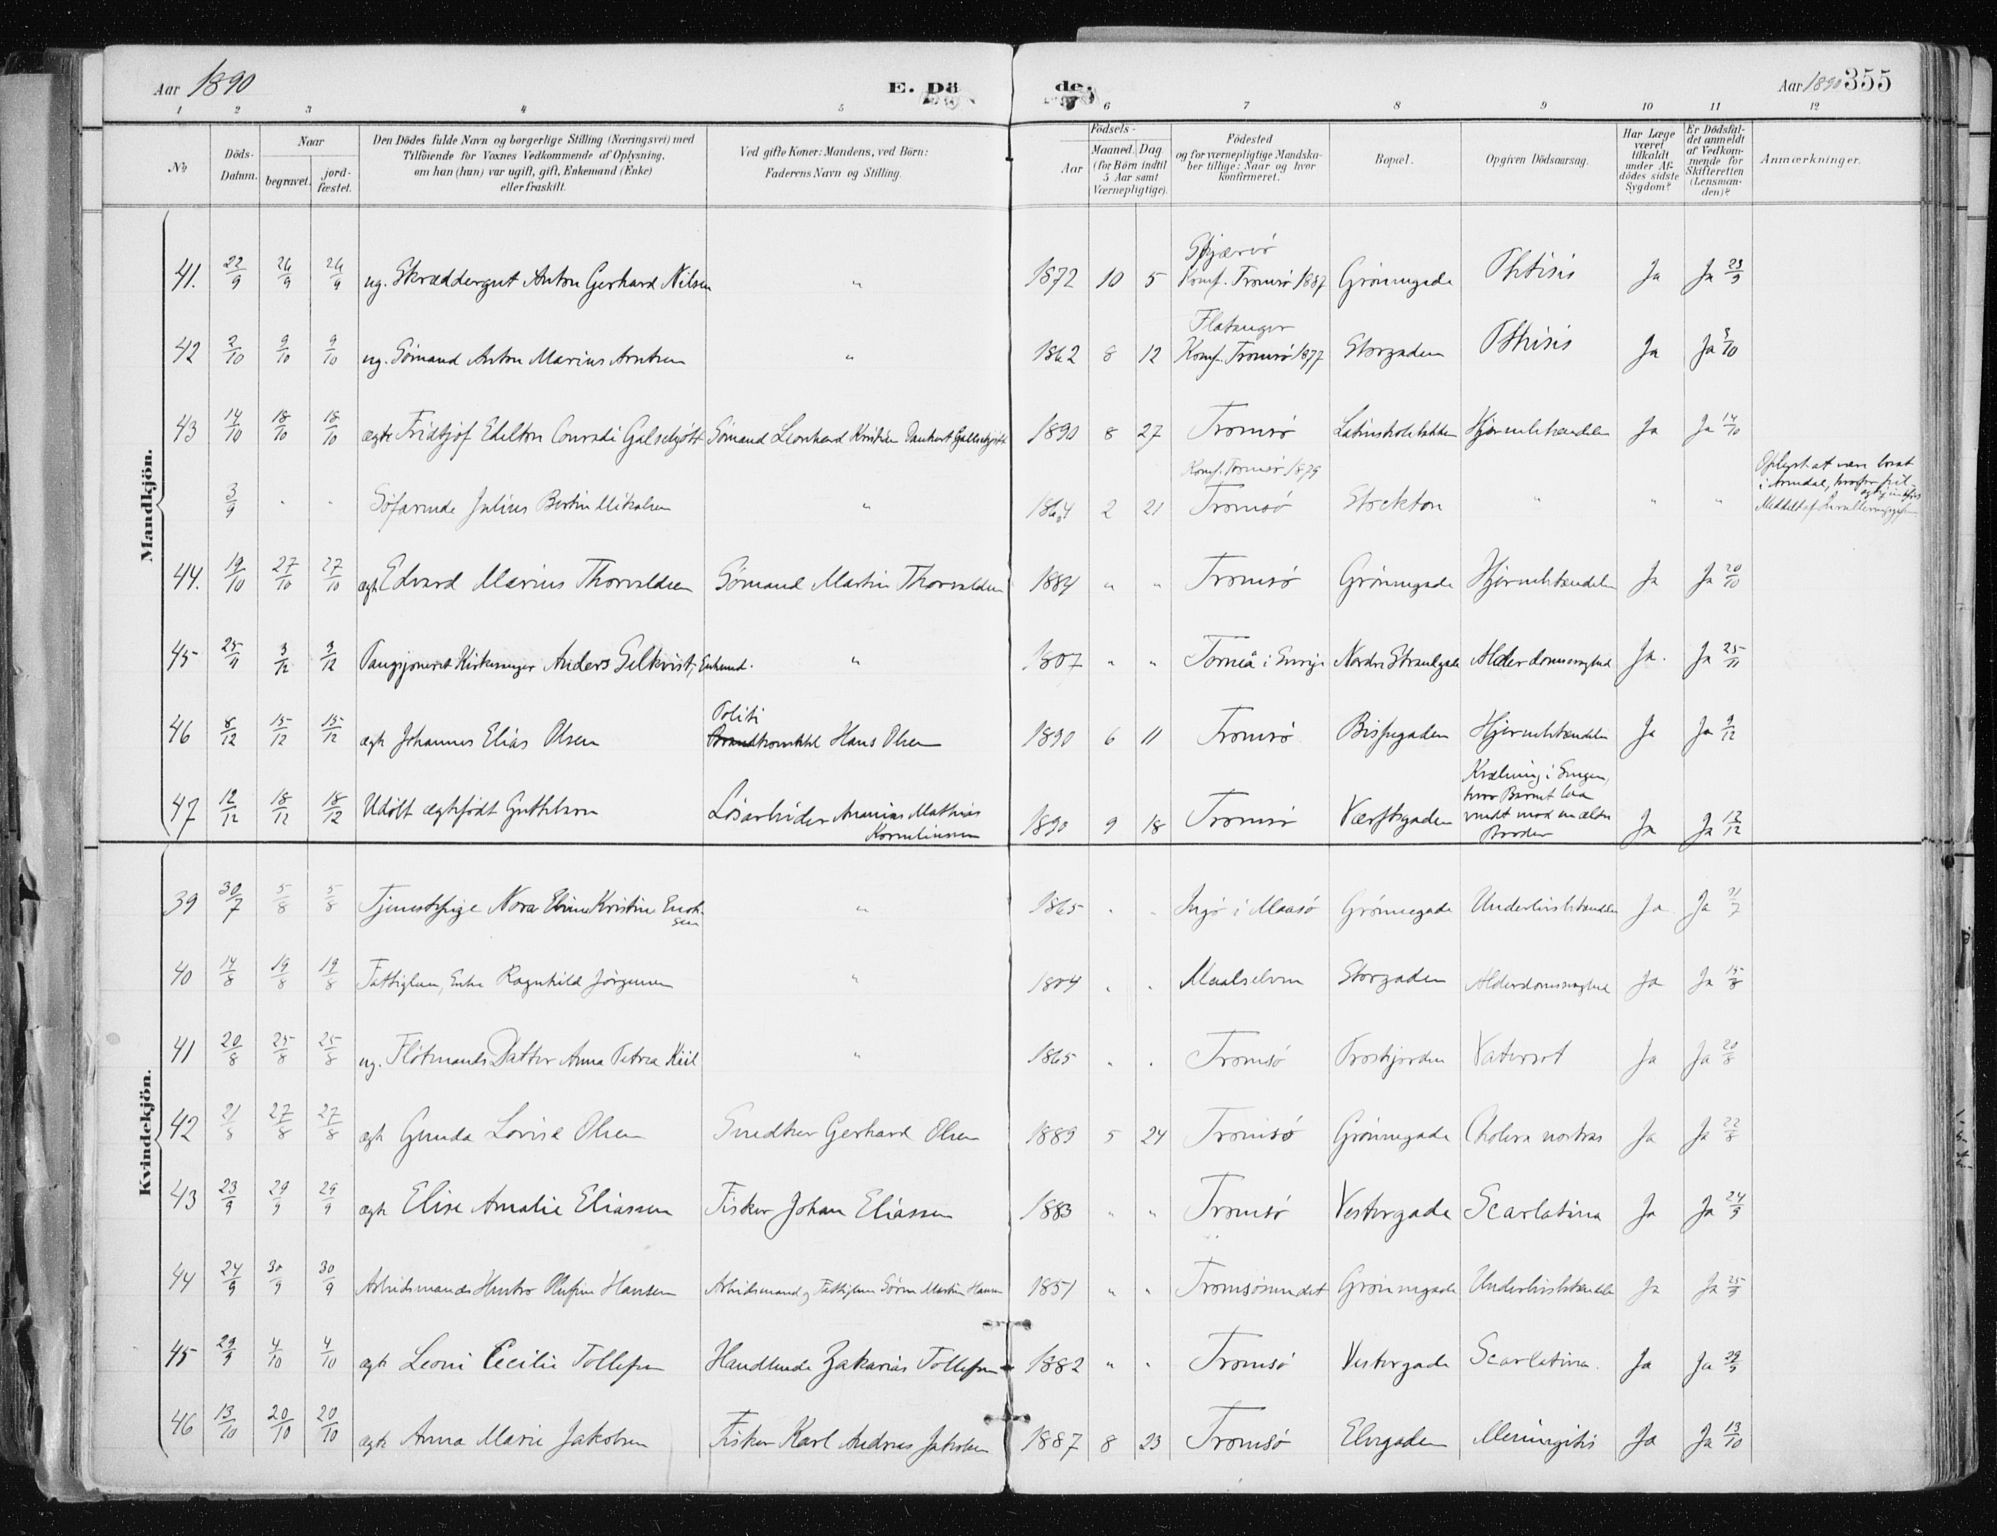 Aar 1890
E. Dö
de.
Aar 1890 355
1 2 3 4 5 6 7 8 9 10 11 12
No
Döds-
Datum.
Naar
begravet.
jord-
fæstet.
Den Dödes fulde Navn og borgerlige Stilling (Næringsvei) med
Tilföiende for Voxnes Vedkommende af Oplysning,
om han (hun) var ugift, gift, Enkemand (Enke)
eller fraskilt.
Ved gifte Koner: Mandens, ved Börn:
Faderens Navn og Stilling.
Födsels-
Aar
Maaned. Dag.
(for Börn indtil
5 Aar samt
Værnepligtige).
Födested
og for værnepligtige Mandska-
ber tillige: Naar og hvor
konfirmeret.
Bopæl.
Opgiven Dödsaarsag.
Har Læge
været
tilkaldt
under Af-
dödes sidste
Sygdom?
Er Dödsfal-
det anmeldt
af Vedkom-
mende for
Skifteretten
(Lensman-
den)?
Anmærkninger.
Mandkjön.
Skjærvø
41. 22/9 26/9 26/9 ug. Skræddergut Anton Gerhard Nilsen " 1872 10 5 Konf. Tromsø 1887 Grønnegade Phtisis Ja Ja 23/9
Flatanger
42 2/10 9/10 9/10 ug. Sømand Anton Marius Arntsen " 1862 8 12 Konf. Tromsø 1877 Storgaden Pthisis Ja Ja 3/10
43 14/10 18/10 18/10 ægte Fridtjof Edilton Conradi Galschjøtt Sømand Leonhard Kristian Dankert Galschjøtt 1890 8 27 Tromsø Latinskolebakken Hjernebetændelse Ja Ja 14/10
Konf. Tromsø 1879
3/9 " " Søfarende Julius Bertin Mikalsen " 1864 2 21 Tromsø Stockton " " "
Oplyst at være
i Arendal,
Meddelt af
44. 19/10 27/10 27/10 ægte Edvard Marius Thorvaldsen Sømand Martin Thorvaldsen 1884 " " Tromsø Grønnegade Hjernebetændelse Ja Ja 20/10
45 25/11 3/12 3/12 Pangsjoneret Kirkesanger Anders Selkvist, Enkemd. " 1807 " " Torneå i Sverige Nordre Strandgade Alderdomssvaghed Ja. Ja 25/11
Politi
46 8/12 15/12 15/12 ægte Johannes Elias Olsen Brandkonstbl Hans Olsen 1890 6 11 Tromsø Bispegaden Hjernebetændelse Ja Ja 9/12
Kvælning i Sengen,
hvor Barnet laa
47 12/12 18/12 18/12 Udøbt ægtefødt Guttebarn Løsarbeider Ananias Mathias 1890 9 18 Tromsø Værftsgaden vendt mod en ældre Ja Ja 12/12
Korneliussen Broder
Kvindekjön.
39 30/7 5/8 5/8 Tjenestepige Nora Eline Kristine Enok- " 1865 " " Ingø i Maasø Grønnegade Underlivsbetændelse Ja Ja 31/7
sen
40 14/8 19/8 19/8 Fattiglem, Enke Ragnhild Jørgensen " 1804 " " Maalselven Storgaden Alderdomssvaghed Ja Ja 15/8
41 20/8 25/8 25/8 ug. Fløtmands Datter Anna Petrea Kiil " 1865 " " Tromsø Vatersot Ja Ja 20/8
42 21/8 27/8 27/8 ægte Gunda Lovise Olsen Snedker Gerhard Olsen 1889 5 24 Tromsø Grønnegade Cholera nostras Ja Ja 22/8
43 23/9 29/9 29/9 ægte Elise Amalie Eliassen Fisker Johan Eliassen 1883 " " Tromsø Vestergade Scarlatina Ja Ja 24/9
44 24/9 30/9 30/9 Arbeidsmands Hustru Olufine Hansen Arbeidsmand og Fattiglem Søren Martin Hansen 1851 " " Tromsøsundet Grønnegade Underlivsbetændelse Ja Ja 25/9
45 29/9 4/10 4/10 ægte Leoni Cecilie Tollefsen Handlende Zakarias Tollefsen 1882 " " Tromsø Vestergade Scarlatina. Ja Ja 29/9
46 13/10 20/10 20/10 ægte Anna Marie Jakobsen Fisker Karl Andreas Jakobsen 1887 8 23 Tromsø Elvegaden Meningitis Ja Ja 13/10